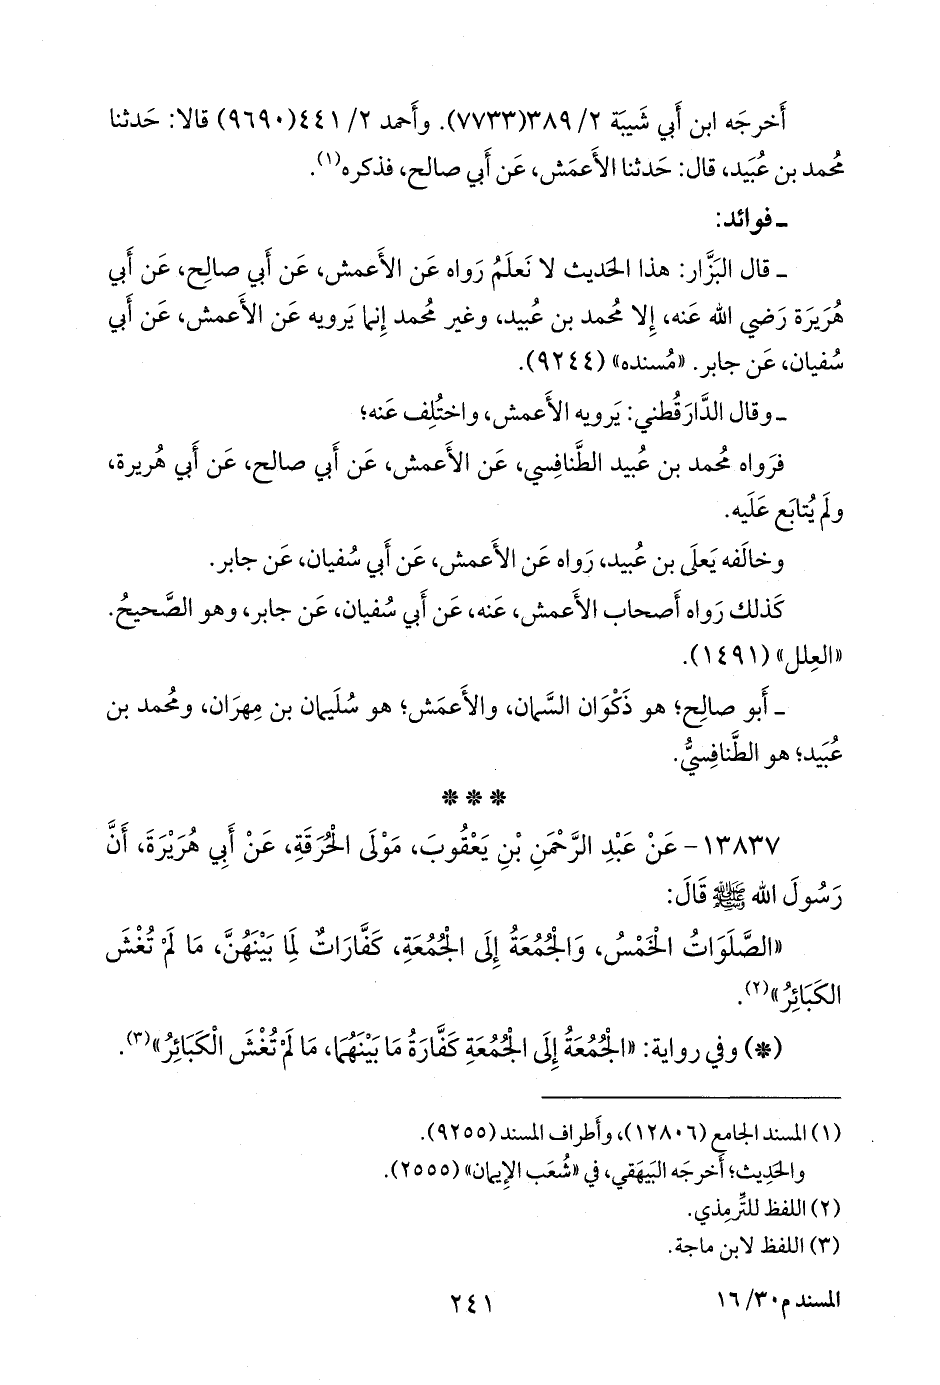 أَخرجَه ابن أَبي شَيبَة ٢/ ٣٨٩(٧٧٣٣). وأَحمد ٢/ ٤٤١(٩٦٩٠) قالا: حَدثنا
مُحمد بن عُبَيد، قال: حَدثنا الأَعمَش، عَن أَبي صالح، فذكره(١).
ـ فوائد:
ـ قال البَزَّار: هذا الحَديث لا نَعلَمُ رَواه عَن الأَعمش، عَن أَبي صالِح، عَن أَبي
هُرَيرَة رَضي الله عَنه، إِلا مُحمد بن عُبيد، وغير مُحمد إِنما يَرويه عَن الأَعمش، عَن أَبي
سُفيان، عَن جابر. «مُسنده» (٩٢٤٤).
ـ وقال الدَّارَقُطني: يَرويه الأَعمش، واختُلِف عَنه؛
فرَواه مُحمد بن عُبيد الطَّنافِسي، عَن الأَعمش، عَن أَبي صالح، عَن أَبي هُريرة،
ولَم يُتابَع عَلَيه.
وخالَفه يَعلَى بن عُبيد، رَواه عَن الأَعمش، عَن أَبي سُفيان، عَن جابر.
كَذلك رَواه أَصحاب الأَعمش، عَنه، عَن أَبي سُفيان، عَن جابر، وهو الصَّحيحُ.
«العِلل» (١٤٩١).
ـ أَبو صالِح؛ هو ذَكْوَان السَّمان، والأَعمَش؛ هو سُلَيمان بن مِهرَان، ومُحمد بن
عُبَيد؛ هو الطَّنافِسيُّ.
* * *
١٣٨٣٧- عَنْ عَبْدِ الرَّحْمَنِ بْنِ يَعْقُوبَ، مَوْلَى الْحُرَقَةِ، عَنْ أَبِي هُرَيْرَةَ، أَنَّ
رَسُولَ الله ﷺ قَالَ:
«الصَّلَوَاتُ الْخَمْسُ، وَالْجُمُعَةُ إِلَى الْجُمُعَةِ، كَفَّارَاتٌ لِمَا بَيْنَهُنَّ، مَا لَمْ تُغْشَ
الكَبَائِرُ»(٢).
(*) وفي رواية: «الْجُمُعَةُ إِلَى الْجُمُعَةِ كَفَّارَةُ مَا بَيْنَهُمَا، مَا لَمْ تُغْشَ الْكَبَائِرُ»(٣).
(١) المسند الجامع (١٢٨٠٦)، وأَطراف المسند (٩٢٥٥).
والحَدِيث؛ أَخرجَه البَيهَقي، في «شُعَب الإِيمان» (٢٥٥٥).
(٢) اللفظ للتِّرمِذي.
(٣) اللفظ لابن ماجة.
المسند م٣٠/ ١٦
٢٤١